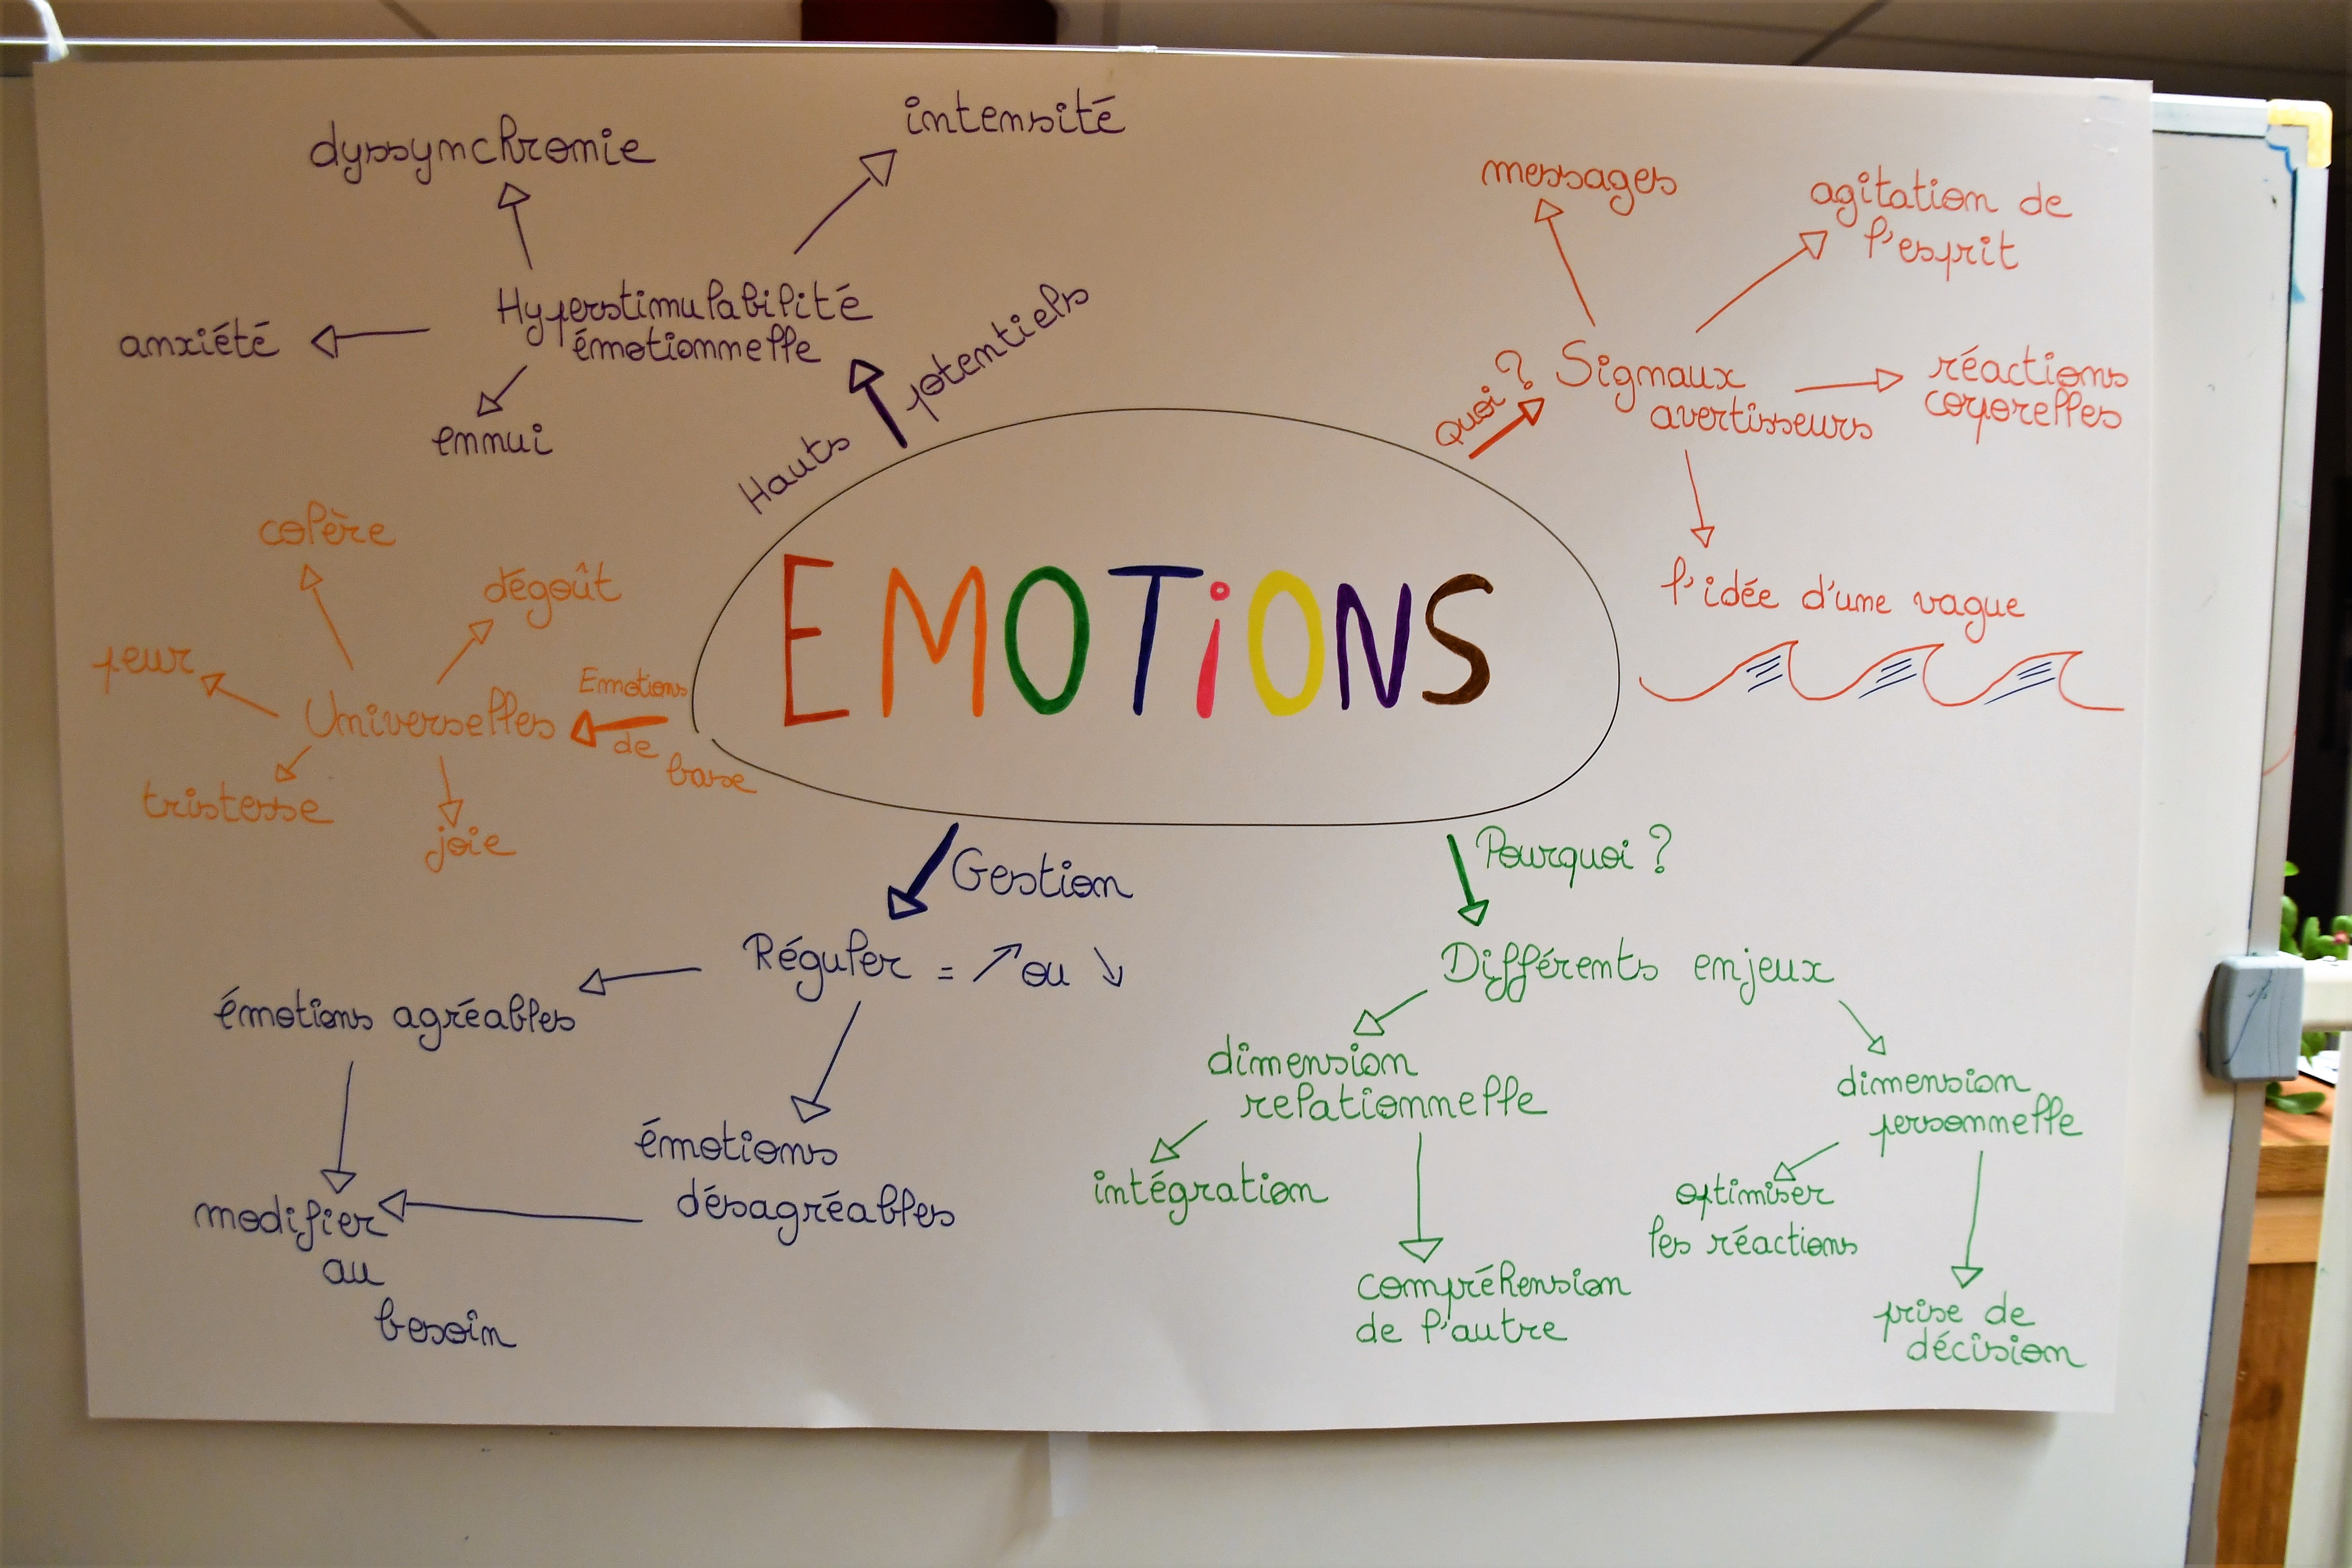 dyssynchronie
intensité
Hyperstimulabilité
émotionnelle
anxiété
ennui
Hauts potentiels
messages
agitation de
l'esprit
Quoi ?
Signaux
avertisseurs
réactions
corporelles
l'idée d'une vague
EMOTiONS
colère
dégoût
peur
Emotions
de
base
Universelles
tristesse
joie
Gestion
Réguler = ↗ ou ↘
émotions agréables
émotions
désagréables
modifier
au
besoin
Pourquoi ?
Différents enjeux
dimension
relationnelle
intégration
compréhension
de l'autre
dimension
personnelle
optimiser
les réactions
prise de
décision